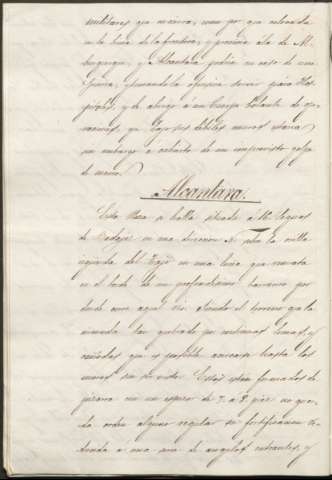 militares que encierra, como por que colocada
en la linea de la frontera, y proxima á la de Al-
burquerque, y Alcantara podria en caso de una
guerra, tomando la ofensiva servir para Hos-
pitales, y de abrigo á un Cuerpo volante de ope-
raciones, que bajo sus debiles muros estaria
sin embargo á cubierto de un improvisto golpe
de mano.
Alcantara.
Esta Plaza se halla situada á 14 leguas
de Badajoz en una direccion N. sobre la orilla
izquierda del Tajo en una loma que remata
en el borde de un profundisimo barranco por
donde corre aquel rio. Siendo el terreno que la
circunda tan quebrado por continuas lomas, y
cañadas que es posible acercarse hasta los
muros sin ser visto. Estos estan formados de
pizarra con un espesor de 7. á 8. pies no guar-
da orden alguno regular su fortificacion re-
ducida á una serie de angulos entrantes, y